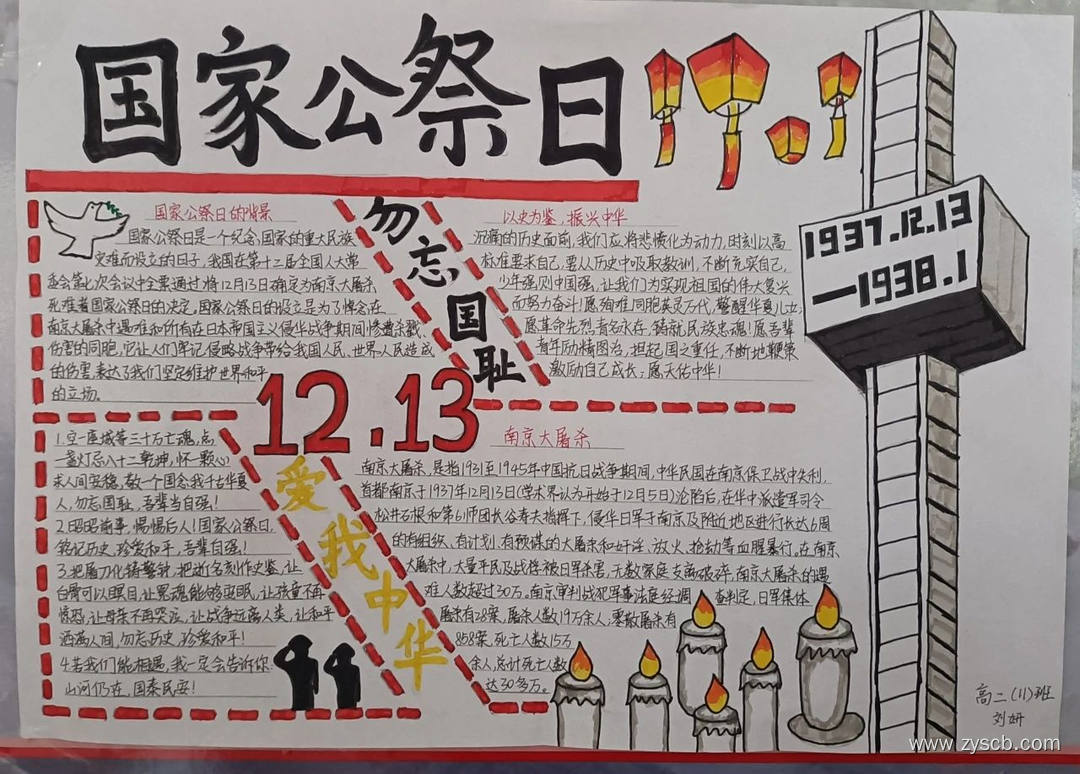 国家公祭日
国家公祭日的背景
国家公祭日是一个纪念国家的重大民族
灾难而设立的日子，我国在第十二届全国人大常
委会第七次会议中全票通过将12月13日确定为南京大屠杀
死难者国家公祭日的决定，国家公祭日的设立是为了悼念在
南京大屠杀中遇难和所有在日本帝国主义侵华战争期间惨遭杀戮
伤害的同胞，它让人们牢记侵略战争带给我国人民、世界人民造成
的伤害，表达了我们坚定维护世界和平
的立场。
勿忘国耻
以史为鉴，振兴中华
沉痛的历史面前，我们应将悲愤化为动力，时刻以高
标准要求自己，要从历史中吸取教训，不断充实自己，
少年强则中国强，让我们为实现祖国的伟大复兴
而努力奋斗！愿殉难同胞英灵万代，警醒华夏儿女；
愿革命先烈者名永在，铸就民族忠魂！愿吾辈
青年励精图治，担起国之重任，不断地鞭策
激励自己成长；愿天佑中华！
1937.12.13
—1938.1
12.13
爱我中华
1.空一座城等三十万亡魂，点
盏灯忘八十二乾坤，怀一颗心
求人间安稳，敬一个国念我千古华夏
人，勿忘国耻，吾辈当自强！
2.昭昭前事，惕惕后人！国家公祭日，
铭记历史，珍爱和平，吾辈自强！
3.把屠刀化铸警钟，把逝名刻作史鉴，让
白骨可以瞑目，让冤魂能够安眠，让孩童不再
惊恐，让母亲不再哭泣，让战争远离人类，让和平
洒满人间，勿忘历史，珍爱和平！
4.若我们能相遇，我一定会告诉你：
山河仍在，国泰民安！
南京大屠杀
南京大屠杀，是指1931至1945年中国抗日战争期间，中华民国在南京保卫战中失利，
首都南京于1937年12月13日（学术界认为开始于12月5日）沦陷后，在华中派遣军司令
松井石根和第6师团长谷寿夫指挥下，侵华日军于南京及附近地区进行长达6周
的有组织、有计划、有预谋的大屠杀和奸淫、放火、抢劫等血腥暴行。在南京
大屠杀中，大量平民及战俘被日军杀害，无数家庭支离破碎，南京大屠杀的遇
难人数超过30万。南京审判战犯军事法庭经调查判定，日军集体
屠杀有28案，屠杀人数19万余人；零散屠杀有
858案，死亡人数15万
余人，总计死亡人数
达30多万。
高二(11)班
刘妍
www.zyscb.com